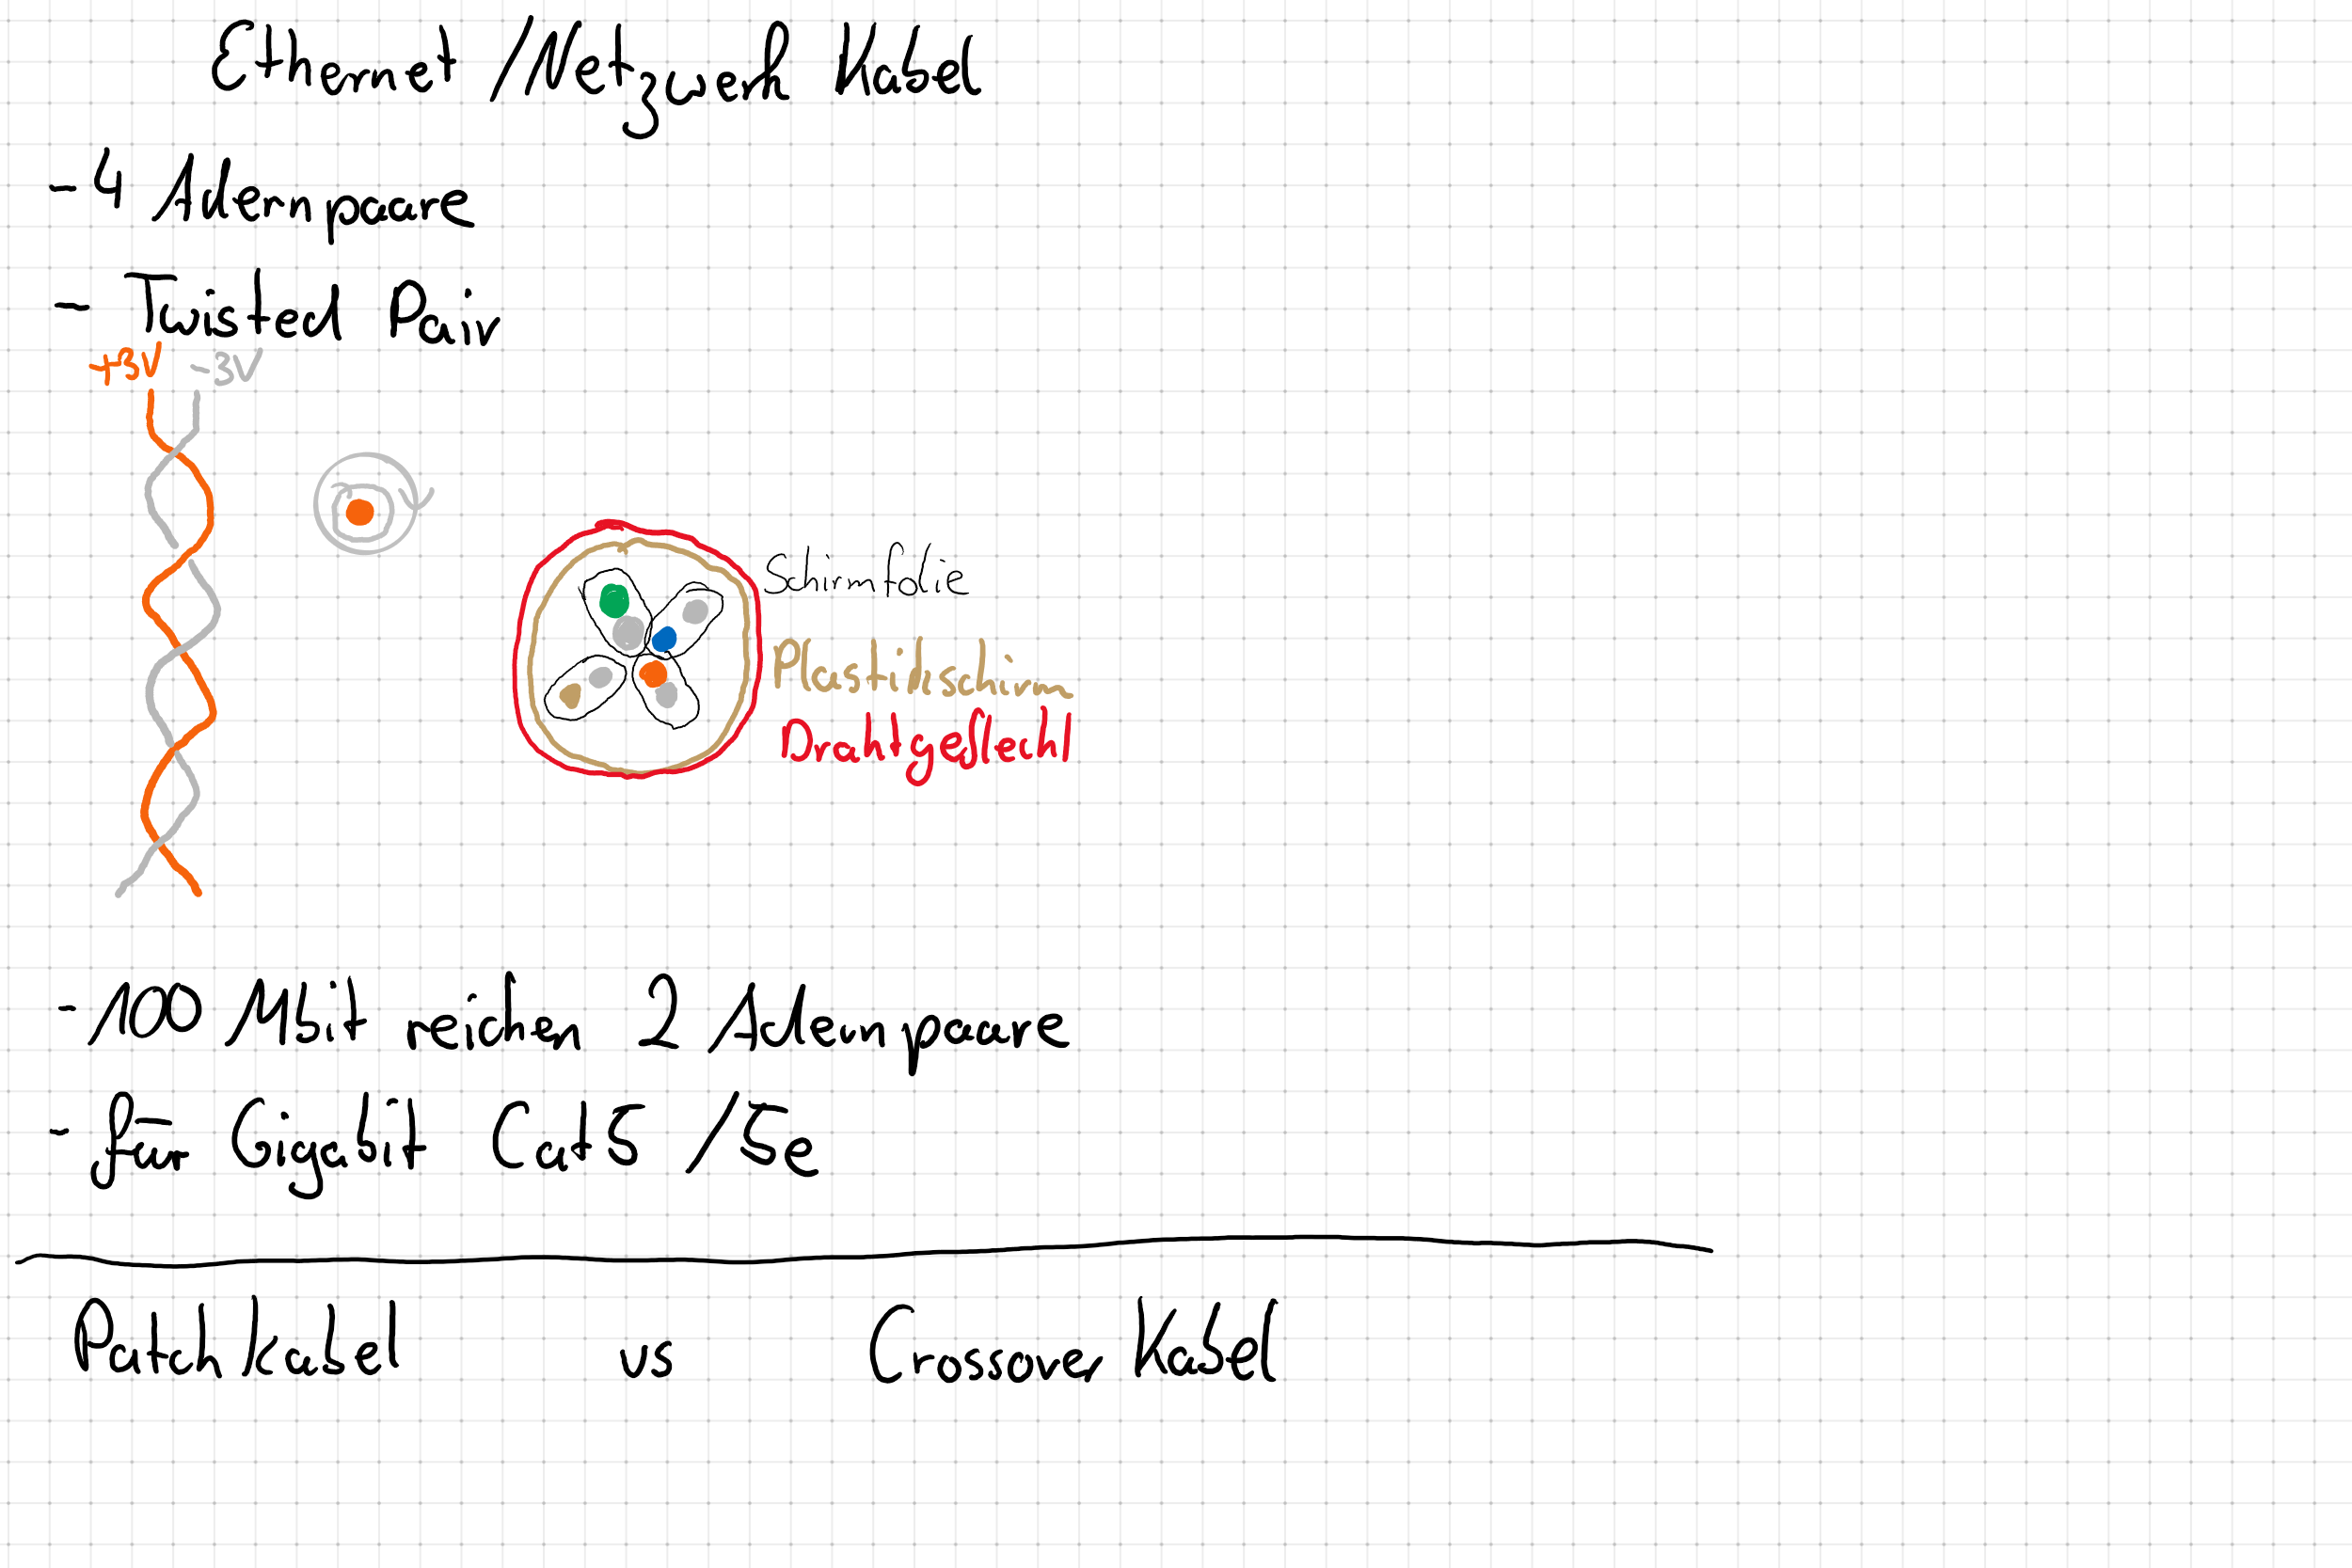 Ethernet /Netzwerk Kabel
- 4 Adernpaare
- Twisted Pair
+3V -3V
Schirmfolie
Plastikschirm
Drahtgeflecht
- 100 Mbit reichen 2 Adernpaare
- für Gigabit Cat5 /5e
Patchkabel vs Crossover Kabel